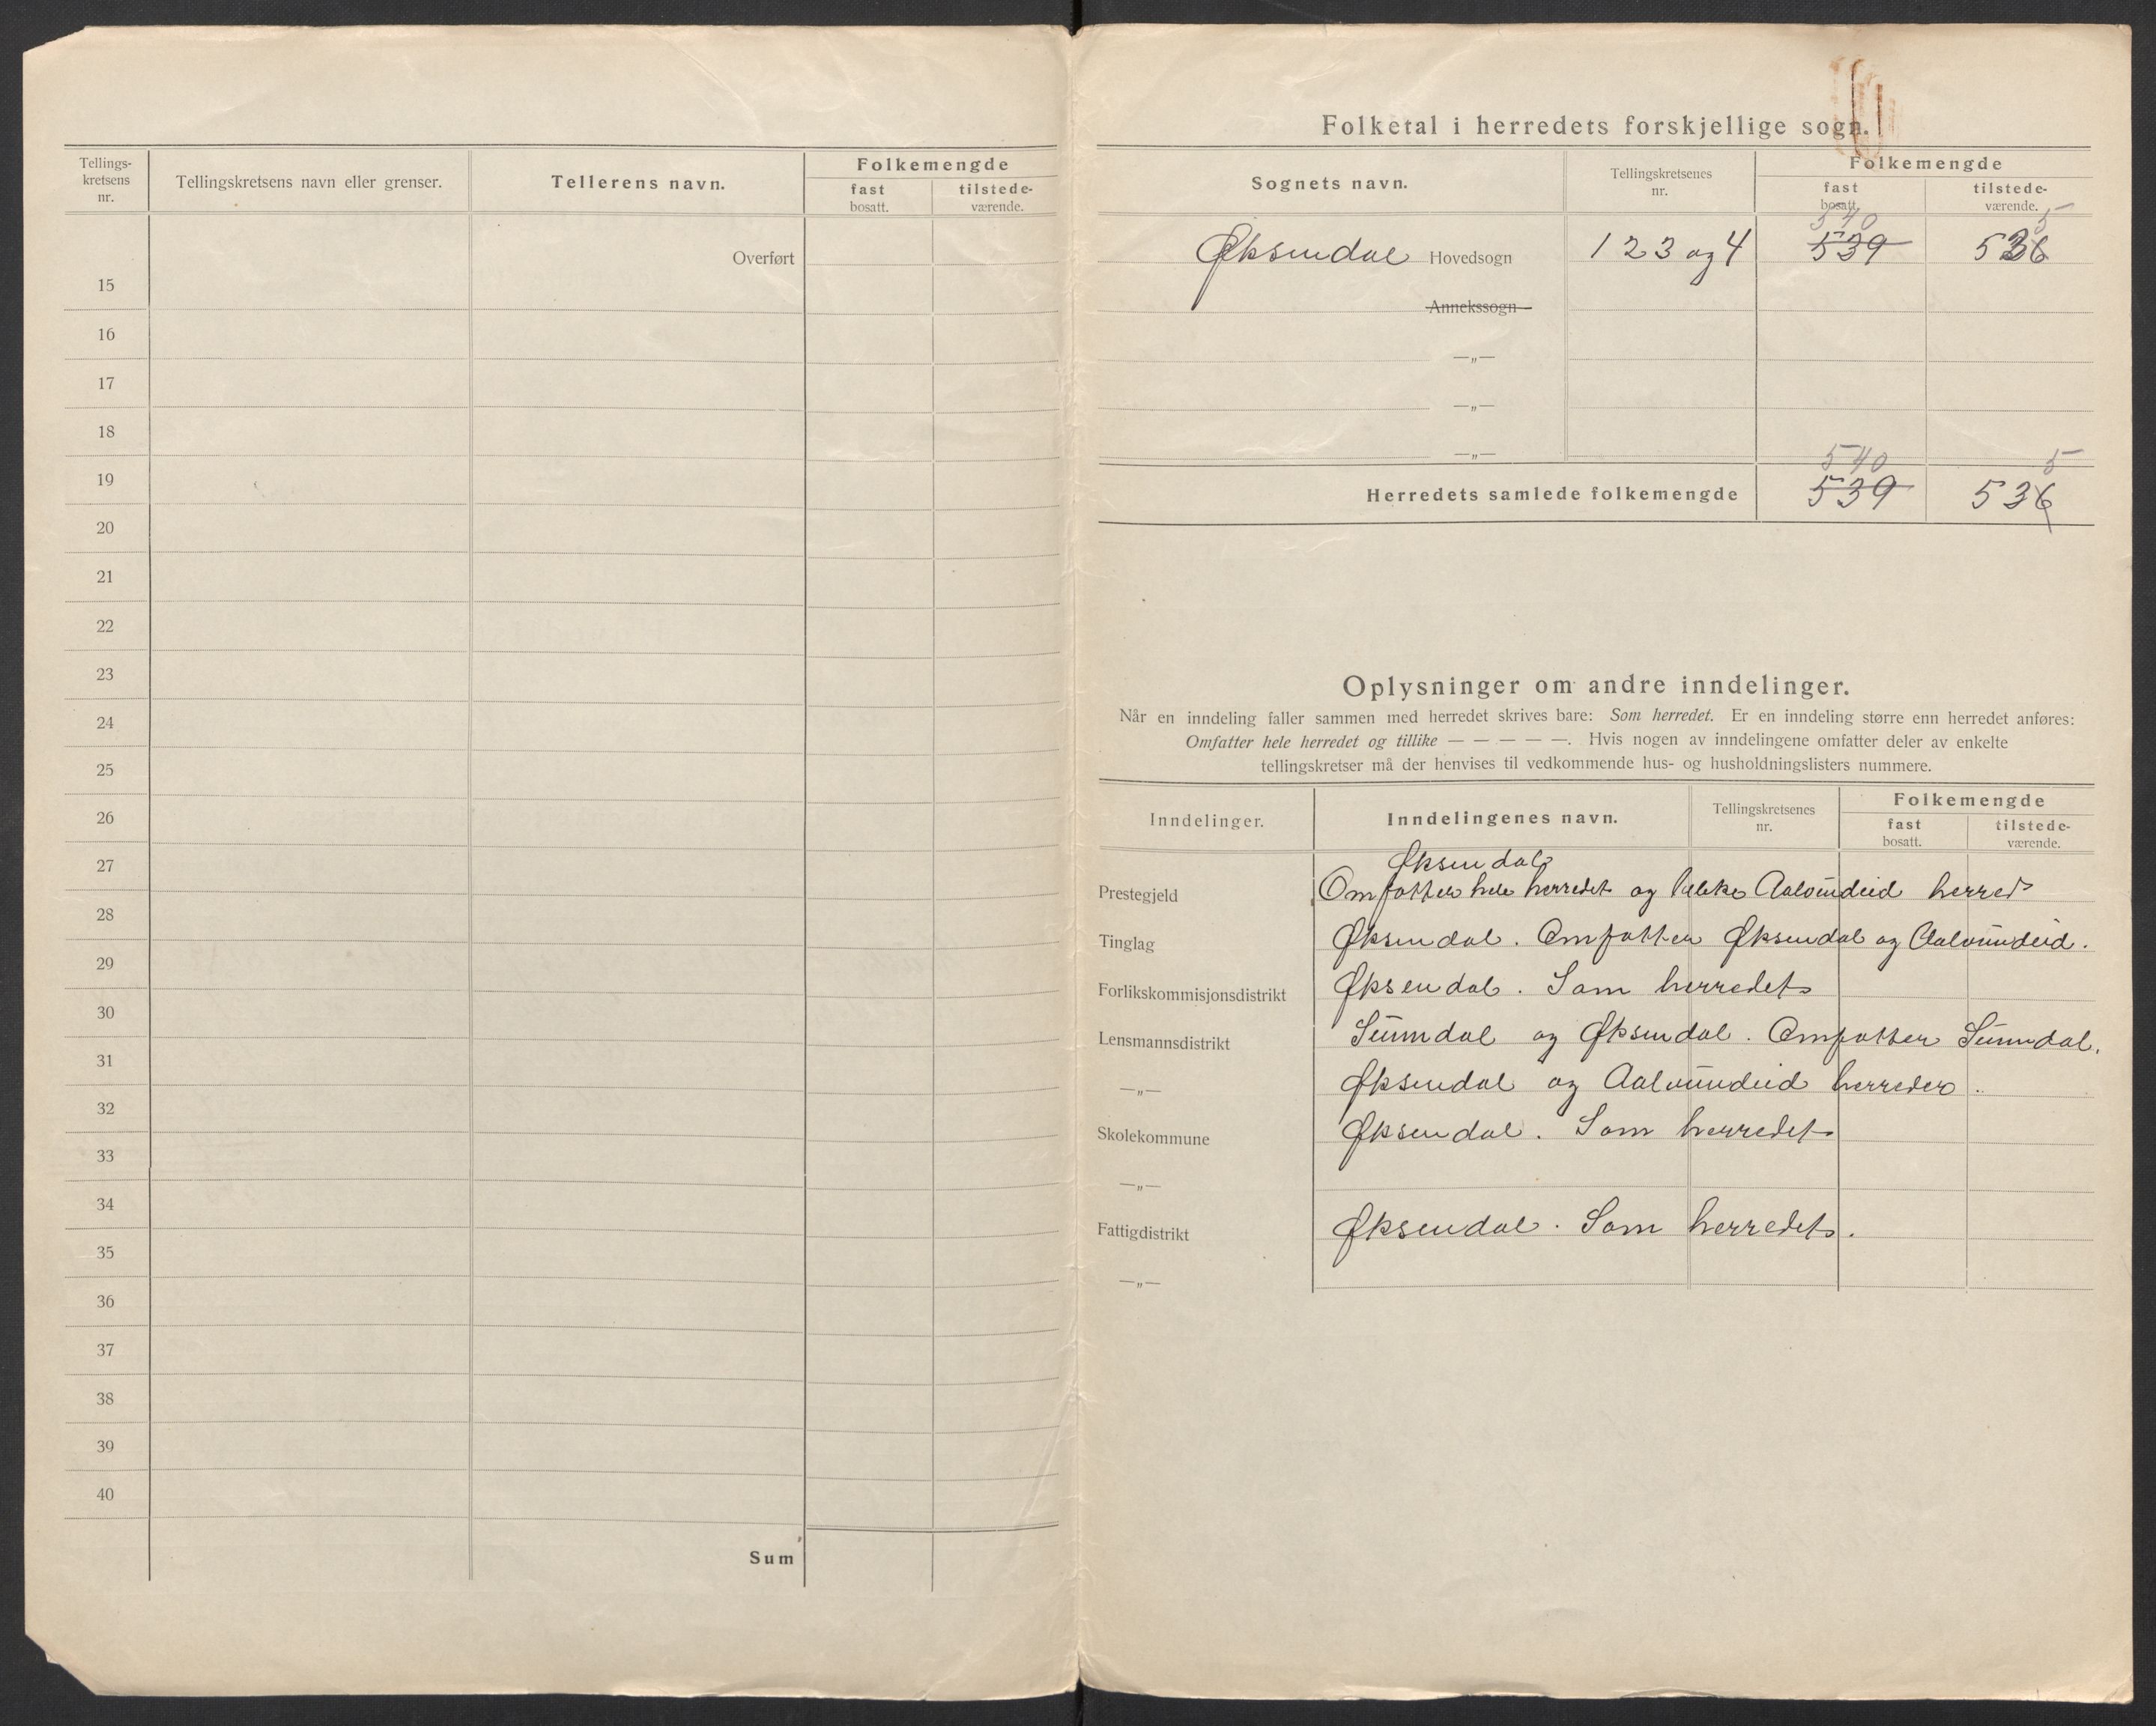 Tellings-
kretsens
nr.
Tellingskretsens navn eller grenser.
Tellerens navn.
Folkemengde
fast
bosatt.
tilstede-
værende.
Overført
15
16
17
18
19
20
21
22
23
24
25
26
27
28
29
30
31
32
33
34
35
36
37
38
39
40
Sum
Folketal i herredets forskjellige sogn.
Sognets navn.
Tellingskretsenes
nr.
Folkemengde
fast
bosatt.
tilstede-
værende.
540 5
Øksendal Hovedsogn 1 2 3 og 4 539 536
Annekssogn
—„—
—„—
—„—
540 5
Herredets samlede folkemengde 539 536
Oplysninger om andre inndelinger.
Når en inndeling faller sammen med herredet skrives bare: Som herredet. Er en inndeling større enn herredet anføres:
Omfatter hele herredet og tillike — — — — —. Hvis nogen av inndelingene omfatter deler av enkelte
tellingskretser må der henvises til vedkommende hus- og husholdningslisters nummere.
Inndelinger.
Inndelingenes navn.
Tellingskretsenes
nr.
Folkemengde
fast
bosatt.
tilstede-
værende.
Øksendal
Prestegjeld Omfatter hele herredet og Aalvundeid herred
Tinglag Øksendal. Omfatter Øksendal og Aalvundeid.
Forlikskommisjonsdistrikt Øksendal. Som herredet
Lensmannsdistrikt Sunndal og Øksendal. Omfatter Sunndal,
—„— Øksendal og Aalvundeid herreder.
Skolekommune Øksendal. Som herredet
—„—
Fattigdistrikt Øksendal. Som herredet.
—„—